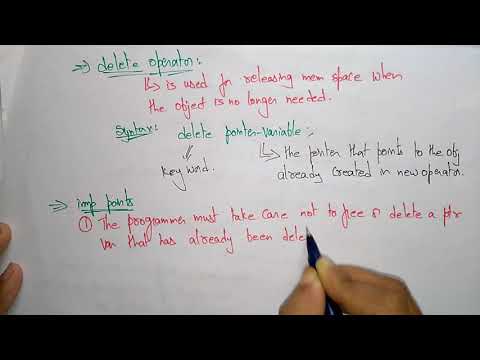 →) delete operator:
↳ is used for releasing mem space when
the object is no longer needed.
Syntax: delete pointer-variable;
keyword.
↳ the pointer that points to the obj
already created in new operator.
⇒ imp points
① The programmer must take care not to free or delete a ptr
var that has already been dele